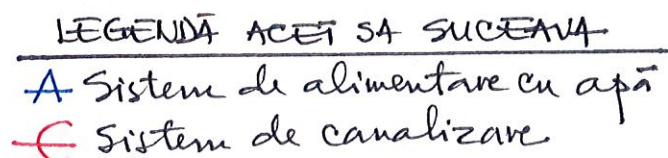 LEGENDĂ ACET SA SUCEAVA
A Sistem de alimentare cu apă
C Sistem de canalizare